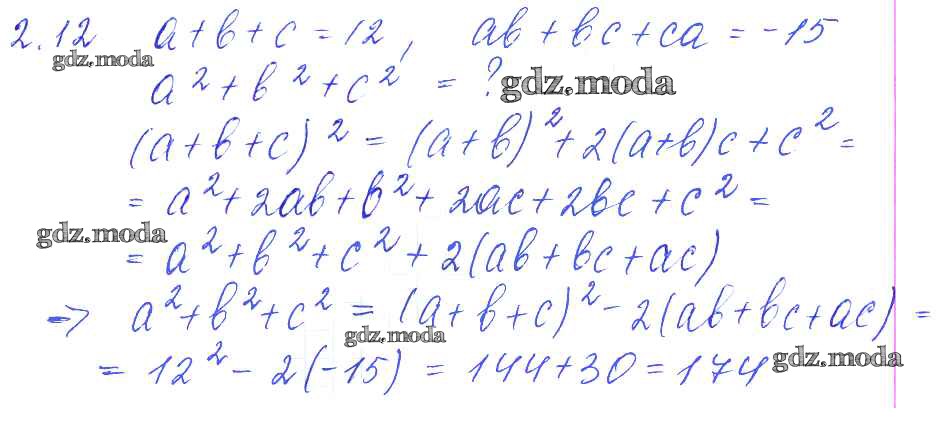 2.12 a+b+c=12, ab+bc+ca=-15
gdz.moda
a²+b²+c² = ? gdz.moda
(a+b+c)² = (a+b)²+2(a+b)c+c² =
= a²+2ab+b²+2ac+2bc+c² =
gdz.moda
= a²+b²+c²+2(ab+bc+ac)
=> a²+b²+c² = (a+b+c)²-2(ab+bc+ac) =
gdz.moda
= 12²-2(-15) = 144+30=174 gdz.moda